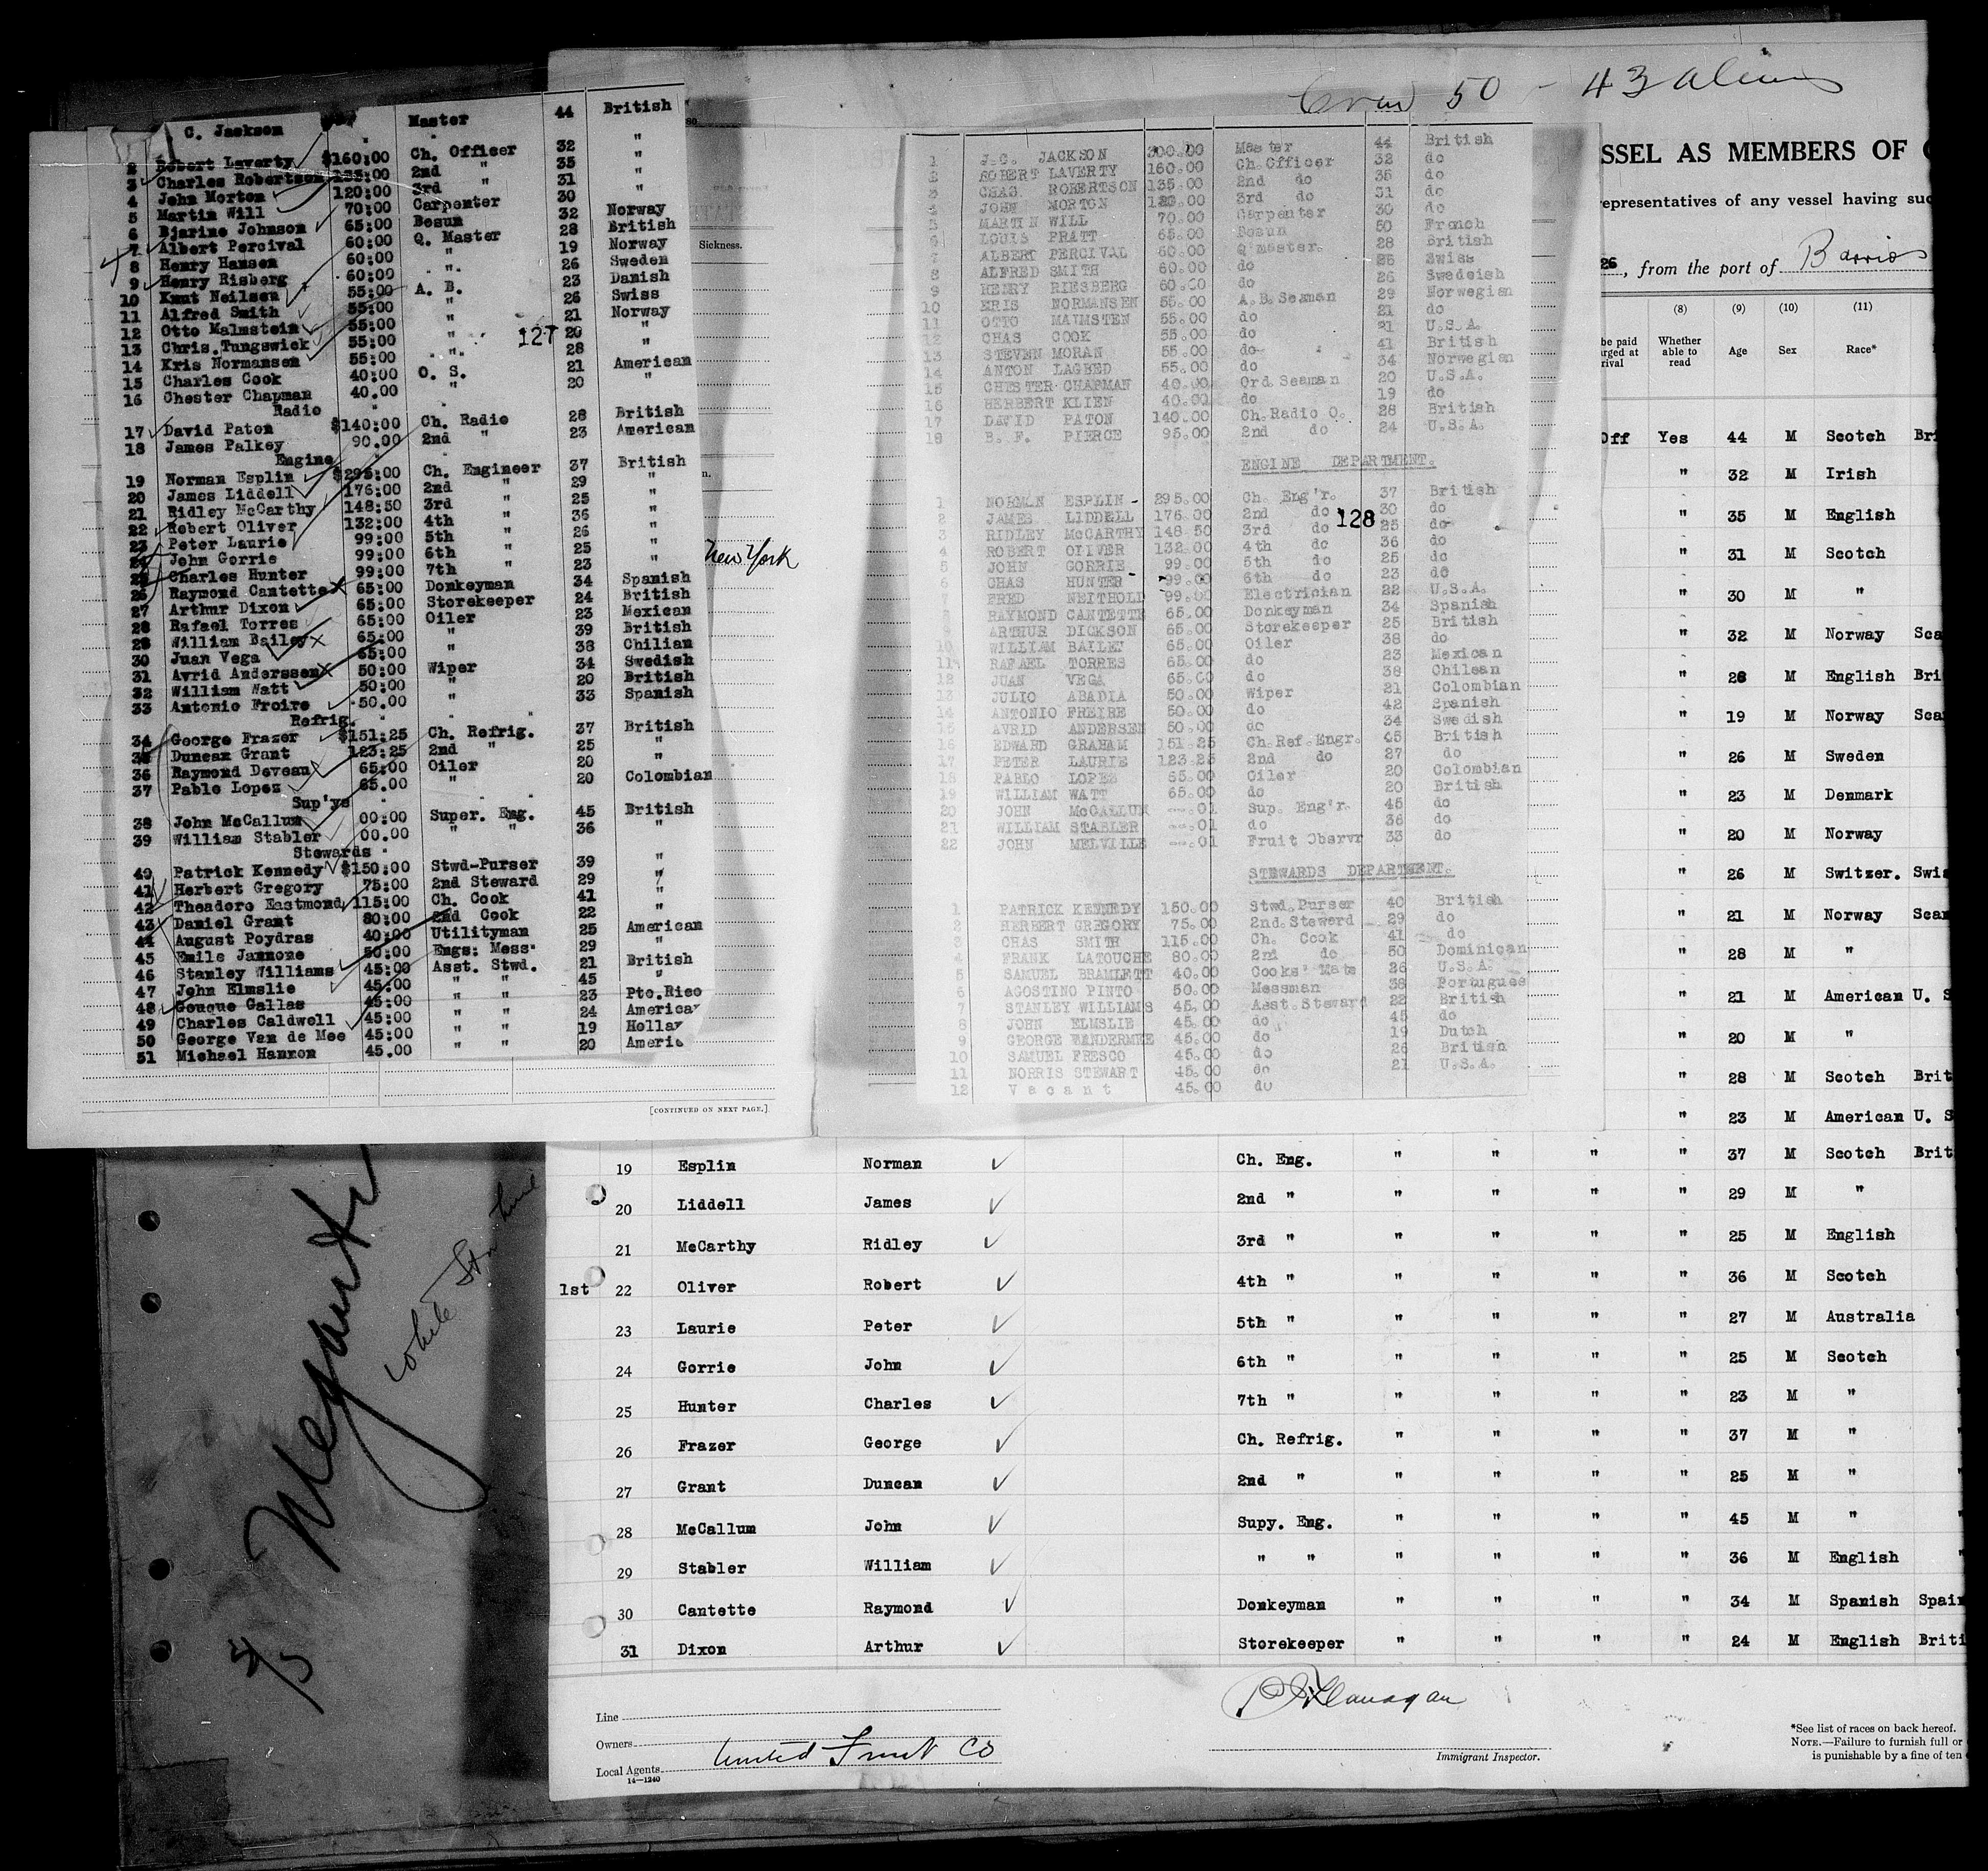 C. Jackson Master 44 British
2 Robert Laverty $160:00 Ch. Officer 32 "
3 Charles Robertson 135:00 2nd " 35 "
4 John Morton 120:00 3rd " 31 "
5 Martin Will 70:00 Carpenter 30 "
6 Bjarine Johnson 65:00 Bosun 32 Norway
7 Albert Percival 60:00 Q. Master 28 British
8 Henry Hansen 60:00 " 19 Norway
9 Henry Risberg 60:00 " 26 Sweden
10 Knut Neilsen 55:00 A. B. 23 Danish
11 Alfred Smith 55:00 " 26 Swiss
12 Otto Malmstein 55:00 " 21 Norway
13 Chris. Tungswick 55:00 " 20 "
14 Kris Normansen 55:00 " 28 "
15 Charles Cook 40:00 O. S. 21 American
16 Chester Chapman 40.00 " 20 "
Radio
17 David Paton $140:00 Ch. Radio 28 British
18 James Palkey 90.00 2nd " 23 American
Engine
19 Norman Esplin $295:00 Ch. Engineer 37 British
20 James Liddell 176:00 2nd " 29 "
21 Ridley McCarthy 148:50 3rd " 25 "
22 Robert Oliver 132:00 4th " 36 "
23 Peter Laurie 99:00 5th " 26 "
24 John Gorrie 99:00 6th " 25 "
25 Charles Hunter 99:00 7th " 23 "
26 Raymond Cantette 65:00 Donkeyman 34 Spanish
27 Arthur Dixon 65:00 Storekeeper 24 British
28 Rafael Torres 65:00 Oiler 23 Mexican
29 William Bailey 65:00 " 39 British
30 Juan Vega 65:00 " 38 Chilian
31 Avrid Anderssen 50:00 Wiper 34 Swedish
32 William Watt 50:00 " 20 British
33 Antonio Froire 50.00 " 33 Spanish
Refrig.
34 George Frazer $151:25 Ch. Refrig. 37 British
35 Duncan Grant 123:25 2nd " 25 "
36 Raymond Deveau 65:00 Oiler 20 "
37 Pablo Lopez 65.00 " 20 Colombian
Sup'ys
38 John McCallum 00:00 Super. Eng. 45 British
39 William Stabler 00.00 " " 36 "
Stewards
40 Patrick Kennedy $150:00 Stwd-Purser 39 "
41 Herbert Gregory 75:00 2nd Steward 29 "
42 Theadore Eastmond 115:00 Ch. Cook 41 "
43 Daniel Grant 80:00 2nd Cook 22 "
44 August Poydras 40:00 Utilityman 25 American
45 Emile Jannone 50:00 Engs: Mess. 29 "
46 Stanley Williams 45:00 Asst. Stwd. 21 British
47 John Elmslie 45:00 " " 45 "
48 Gouque Gallas 45:00 " " 23 Pto.Rico
49 Charles Caldwell 45:00 " " 24 America
50 George Van de Mee 45:00 " " 19 Holla
51 Michael Hannon 45.00 " " 20 Americ
127
Sickness.
New York
[CONTINUED ON NEXT PAGE.]
Crew 50 - 43 aliens
1 J.C. JACKSON 300.00 Master 44 British
2 ROBERT LAVERTY 160.00 Ch.Officer 32 do
3 CHAS. ROBERTSON 135.00 2nd do 35 do
4 JOHN MORTON 120.00 3rd do 31 do
5 MARTIN WILL 70.00 Carpenter 30 do
6 LOUIS PRATT 65.00 Bosun 50 French
7 ALBERT PERCIVAL 60.00 Q'master. 28 British
8 ALFRED SMITH 60.00 do 26 Swiss
9 HENRY RIESBERG 60.00 do 26 Swedeish
10 ERIS NORMANSEN 55.00 A.B.Seaman 29 Norwegian
11 OTTO MALMSTEN 55.00 do 21 do
12 CHAS COOK 55.00 do 21 U.S.A.
13 STEVEN MORAN 55.00 do 41 British
14 ANTON LAGBED 55.00 do 34 Norwegian
15 CHESTER CHAPMAN 40.00 Ord.Seaman 20 U.S.A.
16 HERBERT KLIEN 40.00 do 19 do
17 DAVID PATON 140.00 Ch.Radio O. 28 British
18 B. F. PIERCE 95.00 2nd do 24 U.S.A.
ENGINE DEPARTMENT.
1 NORMAN ESPLIN 295.00 Ch. Eng'r. 37 British
2 JAMES LIDDELL 176.00 2nd do 30 do
3 RIDLEY McCARTHY 148.50 3rd do 25 do
4 ROBERT OLIVER 132.00 4th do 36 do
5 JOHN GORRIE 99.00 5th do 25 do
6 CHAS HUNTER 99.00 6th do 23 do
7 FRED NEITHOLD 99.00 Electrician 22 U.S.A.
8 RAYMOND CANTETTE 65.00 Donkeyman 34 Spanish
9 ARTHUR DICKSON 65.00 Storekeeper 25 British
10 WILLIAM BAILEY 65.00 Oiler 38 do
11 RAFAEL TORRES 65.00 do 23 Mexican
12 JUAN VEGA 65.00 do 38 Chilean
13 JULIO ABADIA 50.00 Wiper 21 Colombian
14 ANTONIO FREIRE 50.00 do 42 Spanish
15 AVRID ANDERSEN 50.00 do 34 Swedish
16 EDWARD GRAHAM 151.25 Ch.Ref.Engr. 45 British
17 PETER LAURIE 123.25 2nd do 27 do
18 PABLO LOPEZ 65.00 Oiler 20 Colombian
19 WILLIAM WATT 65.00 do 20 British
20 JOHN McCALLUM --.01 Sup. Eng'r. 45 do
21 WILLIAM STABLER --.01 do 36 do
22 JOHN MELVILLE --.01 Fruit Obsrvr 33 do
128
STEWARDS DEPARTMENT.
1 PATRICK KENNEDY 150.00 Stwd.Purser 40 British
2 HERBERT GREGORY 75.00 2nd.Steward 29 do
3 CHAS SMITH 115.00 Ch. Cook 41 do
4 FRANK LATOUCHE 80.00 2nd do 50 Dominican
5 SAMUEL BRAMLETT 40.00 Cooks' Mate 26 U.S.A.
6 AGOSTINO PINTO 50.00 Messman 38 Portugues
7 STANLEY WILLIAMS 45.00 Asst.Steward 22 British
8 JOHN ELMSLIE 45.00 do 45 do
9 GEORGE VANDERMEE 45.00 do 19 Dutch
10 SAMUEL FRESCO 45.00 do 26 British
11 NORRIS STEWART 45.00 do 21 U.S.A.
12 Vacant 45.00 do
SSEL AS MEMBERS OF
representatives of any vessel having suc
26, from the port of Barrios
(8) (9) (10) (11)
be paid
arged at
rival
Whether able to read Age Sex Race*
Off Yes 44 M Scotch Bri
" 32 M Irish
" 35 M English
" 31 M Scotch
" 30 M "
" 32 M Norway Sca
" 28 M English Bri
" 19 M Norway Sca
" 26 M Sweden
" 23 M Denmark
" 20 M Norway
" 26 M Switzer. Swis
" 21 M Norway Scan
" 28 M "
" 21 M American U. S
" 20 M "
" 28 M Scotch Brit
" 23 M American U. S
19 Esplin Norman Ch. Eng. " " " " 37 M Scotch Brit
20 Liddell James 2nd " " " " " 29 M "
21 McCarthy Ridley 3rd " " " " " 25 M English
1st 22 Oliver Robert 4th " " " " " 36 M Scotch
23 Laurie Peter 5th " " " " " 27 M Australia
24 Gorrie John 6th " " " " " 25 M Scotch
25 Hunter Charles 7th " " " " " 23 M "
26 Frazer George Ch. Refrig. " " " " 37 M "
27 Grant Duncan 2nd " " " " " 25 M "
28 McCallum John Supy. Eng. " " " " 45 M "
29 Stabler William " " " " " " 36 M English "
30 Cantette Raymond Donkeyman " " " " 34 M Spanish Spain
31 Dixon Arthur Storekeeper " " " " 24 M English Briti
Line
Owners
Local Agents United Fruit Co
14—1240
P Flanagan
Immigrant Inspector.
*See list of races on back hereof.
NOTE.—Failure to furnish full or
is punishable by a fine of ten
Megantic
White Star Line
4/5